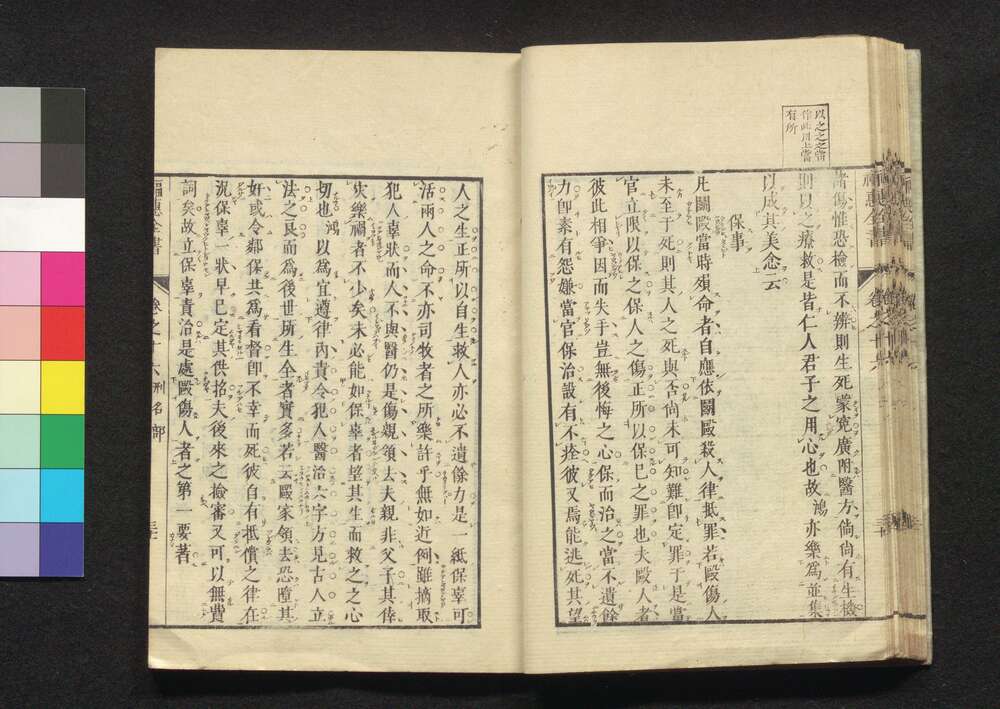 以之之之當
作此用上當
有所
諸傷惟恐檢而不辨則生死蒙寃廣附醫方倘尚有生機
則以之療救是皆仁人君子之用心也故鴻亦樂爲並集
以成其美念云
保辜
凡鬬毆當時殞命者自應依鬬毆殺人律抵罪若毆傷人
未至于死則其人之死與否尚未可知難卽定罪于是當
官立限以保之保人之傷正所以保己之罪也夫毆人者
彼此相爭因而失手豈無後悔之心保而治之當不遺餘
力卽素有怨嫌當官保治設有不痊彼又焉能逃死其望
人之生正所以自生救人亦必不遺餘力是一紙保辜可
活兩人之命不亦司牧者之所樂許乎無如近例雖摘取
犯人辜狀而人不與醫仍是傷親領去夫親非父子其倖
災樂禍者不少矣未必能如保辜者望其生而救之之心
切也鴻以爲宜遵律內責令犯人醫治六字方見古人立
法之良而爲後世班生全者實多若云毆家領去恐墮其
奸或令鄰保共爲看督卽不幸而死彼自有抵償之律在
況保辜一狀早已定其供招夫後來之檢審又可以無費
詞矣故立保辜責治是處毆傷人者之第一要著
福惠全書
卷之十六刑名部